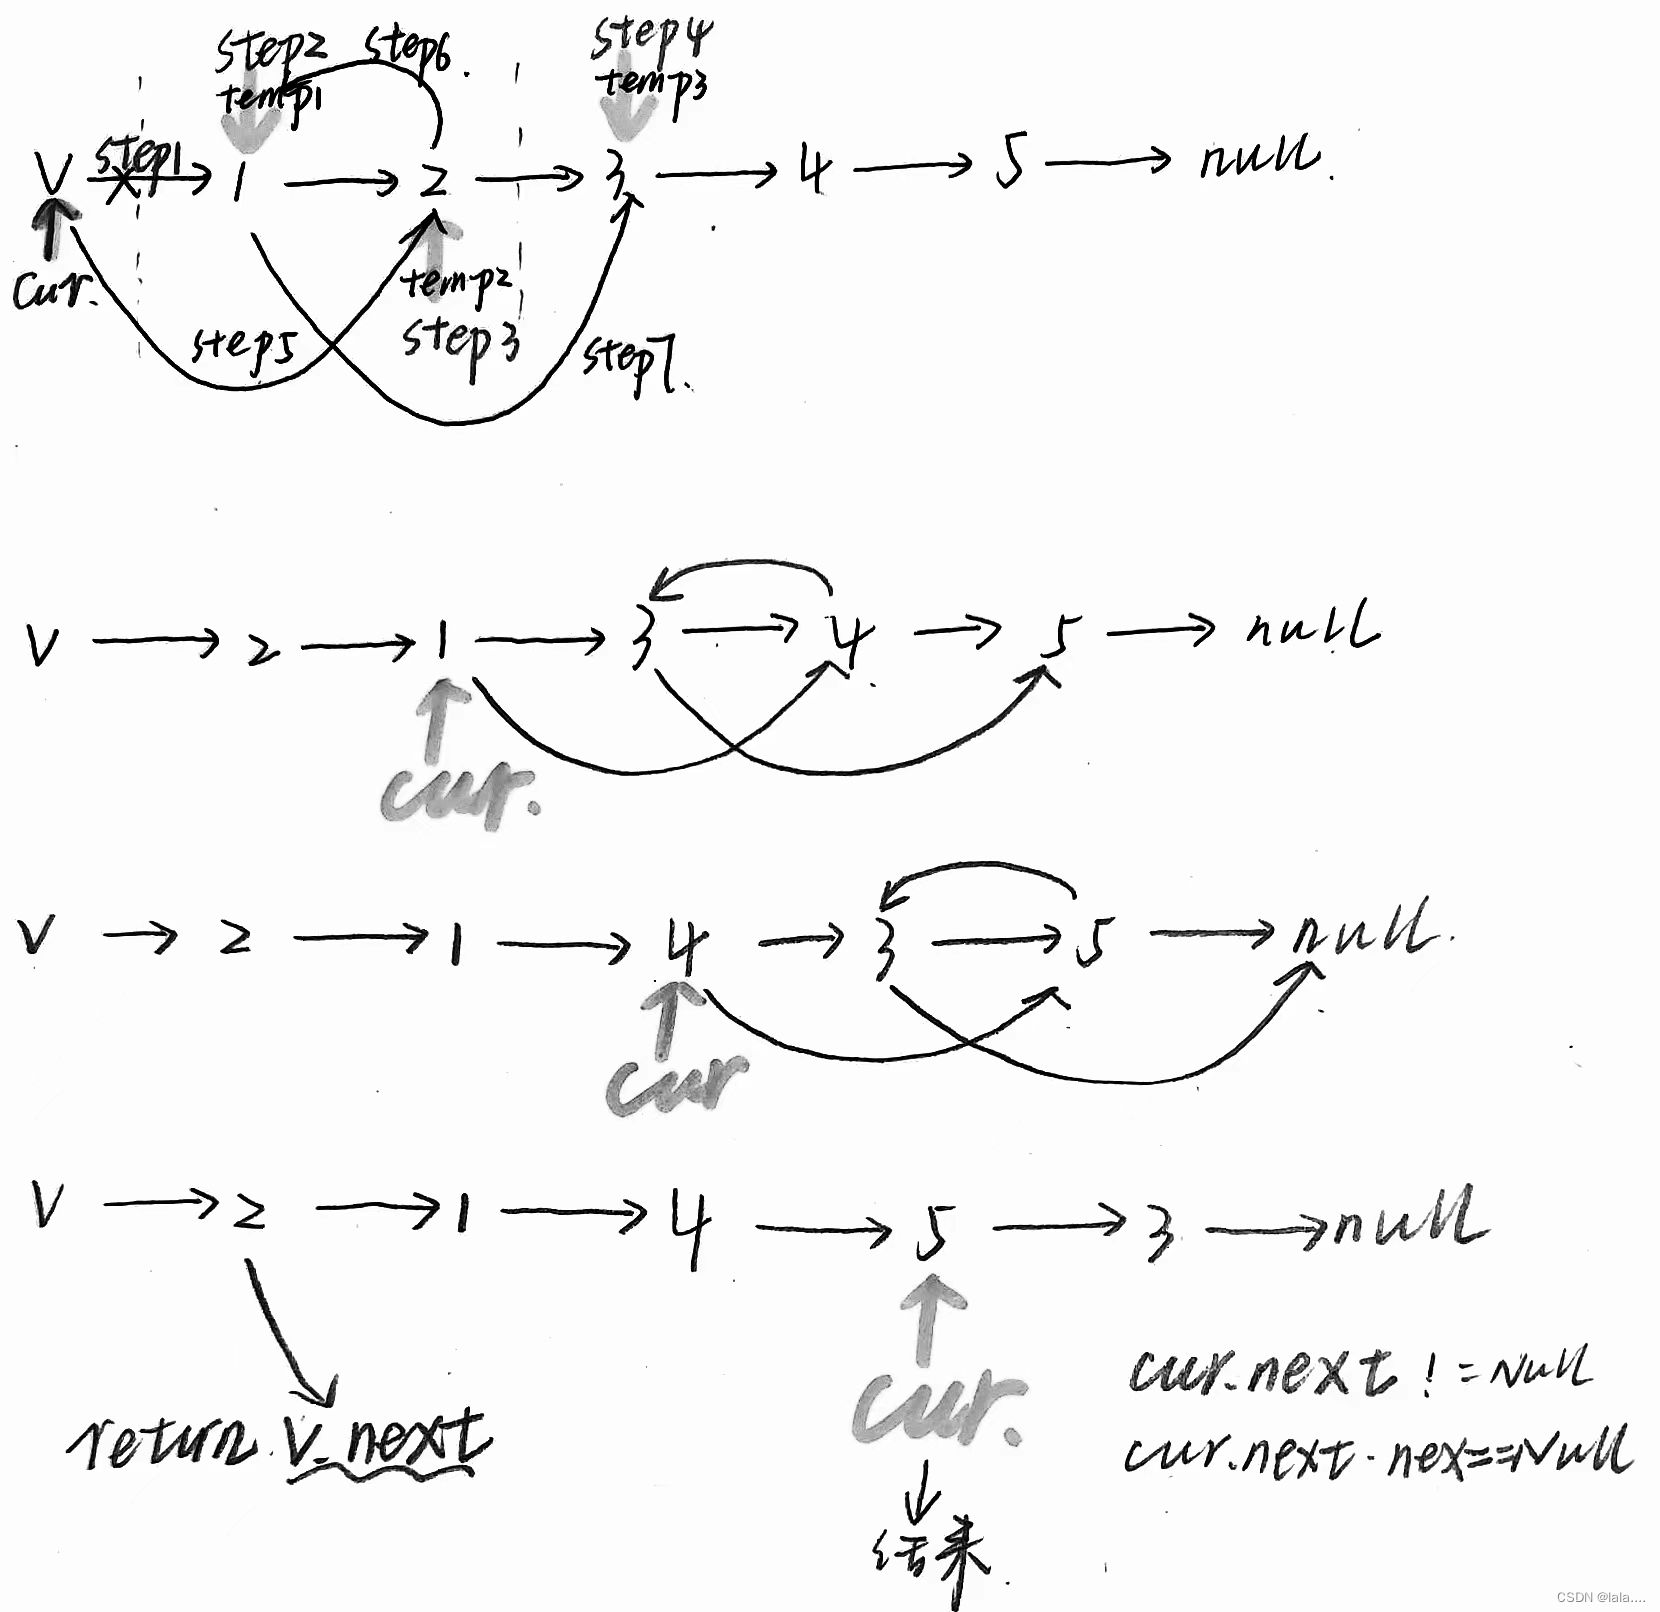 step2 step6.
temp1
step4
temp3
V step1 1 2 3 4 5 null.
cur.
temp2
step3
step5
step7.
V 2 1 3 4 5 null
cur.
V 2 1 4 3 5 null.
cur
V 2 1 4 5 3 null
cur.
return V.next
cur.next != Null
cur.next.nex==Null
结束.
CSDN @lala....